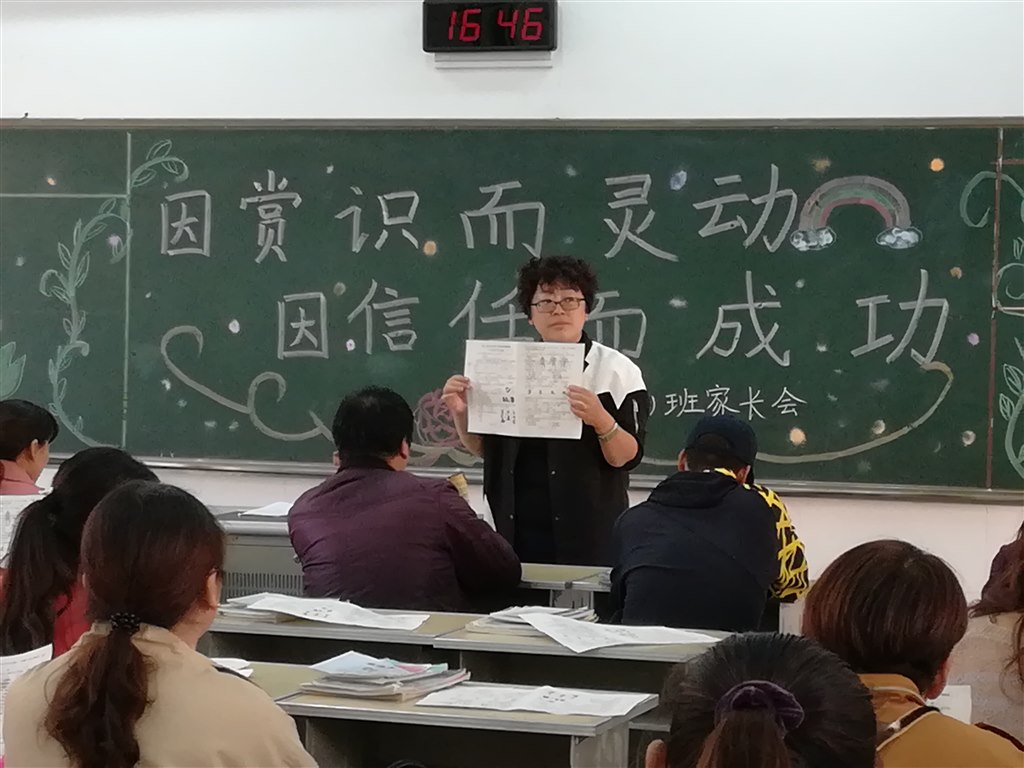 16 46
因赏识而灵动
因信任而成功
)班家长会